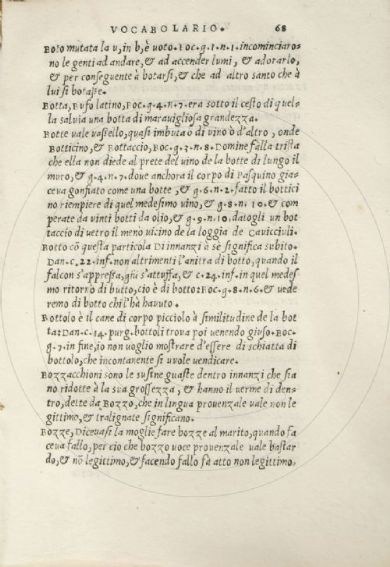 VOCABOLARIO. 68
BOTO mutata la v, in b, è voto. BOC. g. 1. n. 1. incominciaro⸗
no le genti ad andare, & ad accender lumi, & adorarlo,
& per conseguente à botarsi, & che ad altro santo che à
lui si botasse.
BOTTA, Bufo latino, BOC. g. 4. n. 7. era sotto il cesto di quel⸗
la saluia una botta di marauigliosa grandezza.
BOTTE vale vasello, quasi imbuta ò di uino ò d'altro, onde
BOTTICINO, & BOTTACCIO, BOC. g. 3. n. 8. Domine falla trista
che ella non diede al prete del vino de la botte di lungo il
muro, & g. 4. n. 7. doue anchora il corpo di Pasquino gia⸗
ceua gonfiato come una botte, & g. 6. n. 2. fatto il bottici
no riempiere di quel medesimo vino, & g. 8. n. 10. & com
perate da vinti botti da olio, & g. 9. n. 10. datogli un bot
taccio di uetro il meno vicino de la loggia de Cauicciuli.
BOTTO cō questa particola DI innanzi à se significa subito.
DAN. c. 22. inf. non altrimenti l'anitra di botto, quando il
falcon s'appressa, giù s'attuffa, & c. 24. inf. in quel medes⸗
mo ritorno di butto, cio è di botto: BOC. g. 8. n. 6. & uede
remo di botto chi l'hà hauuto.
BOTTOLO è il cane di corpo picciolo à similitudine de la bot
ta: DAN. c. 14. purg. bottoli troua poi uenendo giuso. BOC.
g. 7. in fine, io non uoglio mostrare d'essere di schiatta di
bottolo, che incontanente si uuole uendicare.
BOZZACCHIONI sono le susine guaste dentro innanzi che sia
no ridotte à la sua grossezza, & hanno il uerme di den⸗
tro, dette da BOZZO, che in lingua prouenzale vale non le
gittimo, & tralignate significano.
BOZZE, Diceuasi la moglie fare bozze al marito, quando fa
ceua fallo, per cio che bozzo uoce prouenzale uale bastar
do, & nō legittimo, & facendo fallo fà atto non legittimo.